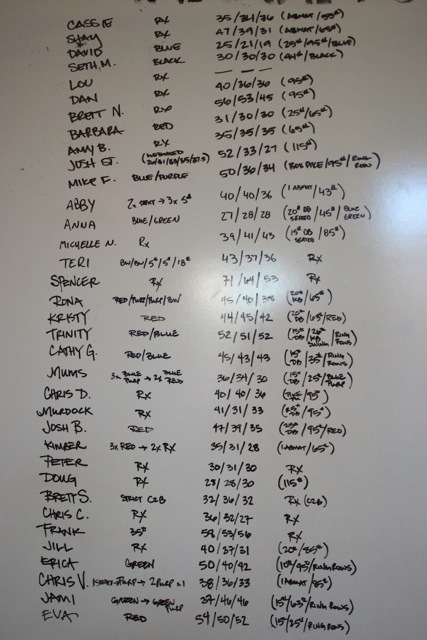 CASSIE RX 35/34/36 (ABMAT/55#)
SHAY RX 47/39/31 (ABMAT/65#)
DAVID BLUE 25/21/19 (25#/95#/BLUE)
SETH M. BLACK 30/30/30 (44#/BLACK)
LOU RX — — —
DAN RX 40/36/36 (95#)
BRETT N. RX 56/53/45 (95#)
BARBARA RED 31/30/30 (25#/65#)
AMY B. RX 35/35/35 (65#)
JOSH ST. 52/33/27 (115#)
MIKE F. BLUE/PURPLE 50/36/34 (95#/RING ROW)
ABBY 2x → 3x 5# 40/40/36 (1 ABMAT/43#)
ANNA BLUE/GREEN 27/28/28 (20# DB SEATED/45#/BLUE GREEN)
MICHELLE N. RX 39/41/43 (15# DB SEATED/85#)
TERI 5#/5#/18# 43/37/36 RX
SPENCER RX 71/64/53 RX
RONA 45/40/38 (20# KB/65#)
KRISTY RED 44/45/42 (20# DB/65#/RED)
TRINITY RED/BLUE 52/51/52 (RING ROWS)
CATHY G. RED/BLUE 45/43/43 (15# DB/35#/RING ROWS)
MUMS 3x BLUE PURP → 2x BLUE RED 36/34/30 (15# DB/25#/BLUE PURP)
CHRIS D. RX 40/40/36 (95#)
MURDOCK RX 41/31/33 (DB/95#)
JOSH B. RED 47/39/35 (DB/95#/RED)
KIMBER 3x RED → 2x RX 35/31/28 (1 ABMAT/65#)
PETER RX 30/31/30 RX
DOUG RX 28/28/30 (115#)
BRETT S. STRICT C2B 32/36/32 RX (C2B)
CHRIS C. RX 36/32/27 RX
FRANK 35# 58/53/56 RX
JILL RX 40/37/31 (20#/55#)
ERICA GREEN 50/40/42 (10#/45#/RING ROWS)
CHRIS V. → 2 PURP x 1 38/36/33 (1 ABMAT/85#)
JAMI GREEN → GREEN PURP 37/46/46 (15#/65#/RING ROWS)
EVA RED 54/50/52 (15#/25#/RING ROWS)